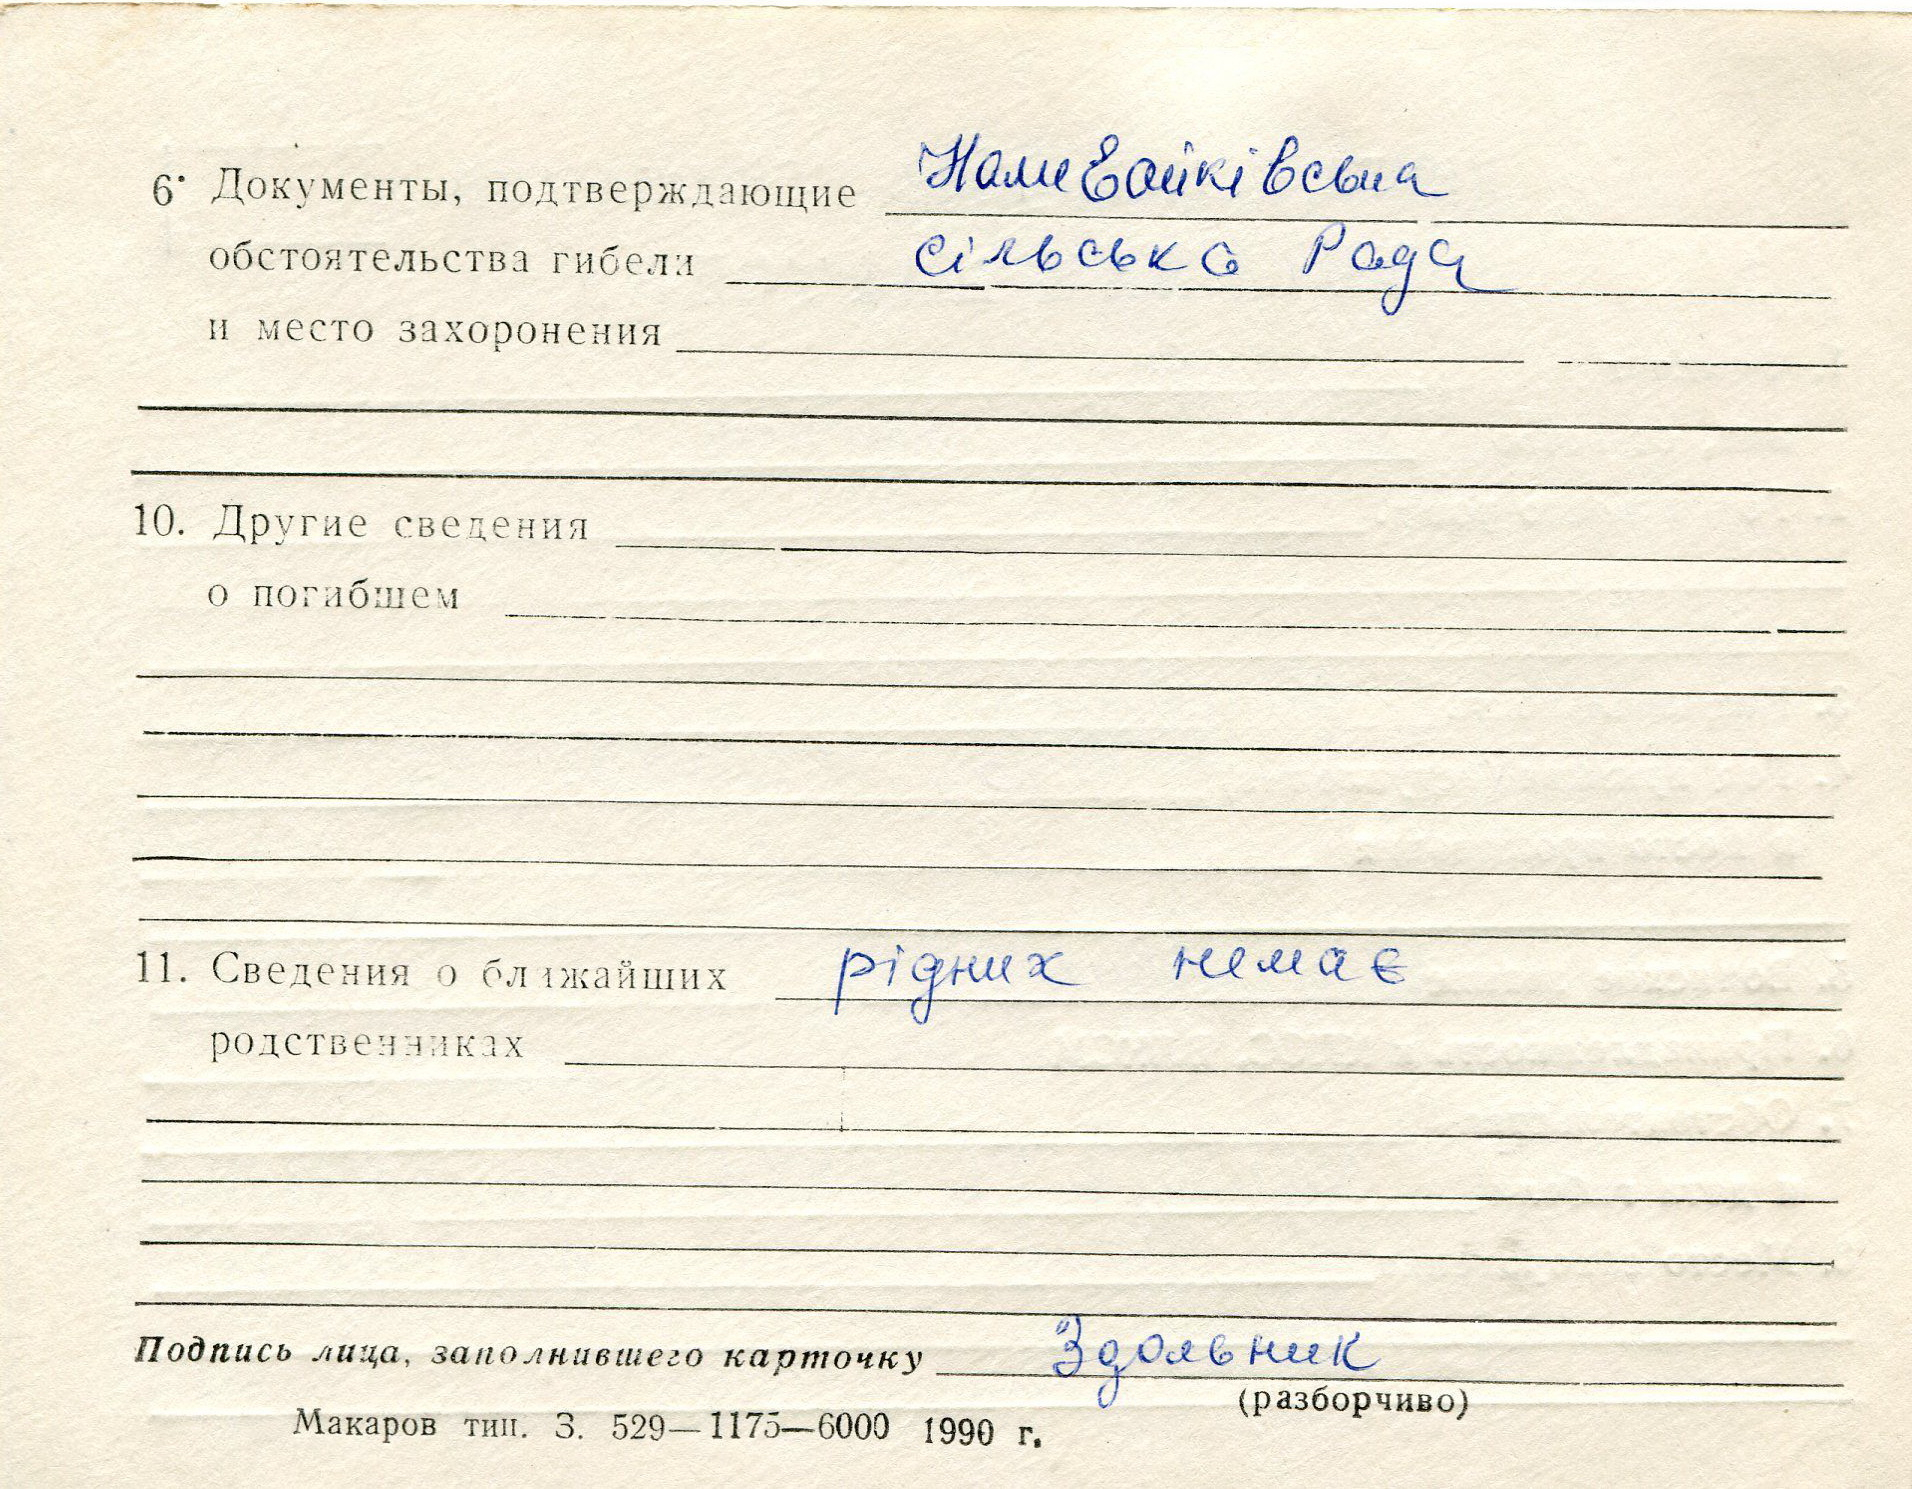 6. Документы, подтверждающие
обстоятельства гибели сільська Рада
и место захоронения
10. Другие сведения
о погибшем
11. Сведения о ближайших рідних немає
родственниках
Подпись лица, заполнившего карточку Здольник
(разборчиво)
Макаров тип. З. 529—1175—6000 1990 г.